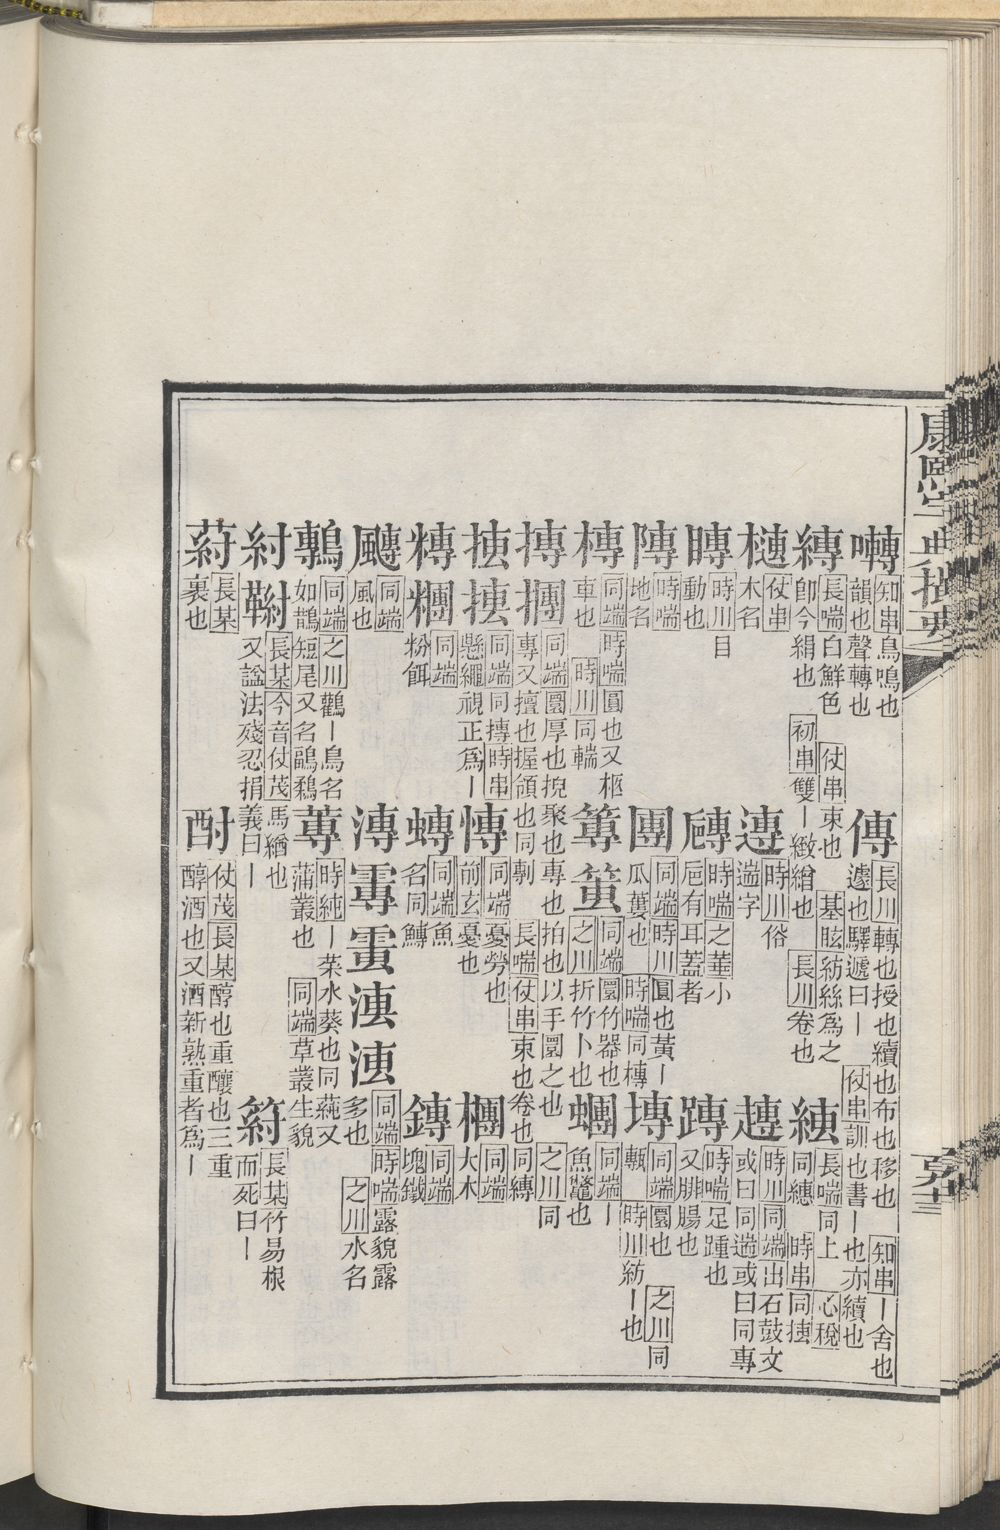 康熙字典撮要
囀 知串鳥鳴也韻也聲轉也
傳 長川轉也授也續也布也移也 知串丨舍也遽也驛遞曰丨 仗串訓也書丨也亦續也
縳 長喘白鮮色 仗串束也 基眩紡絲爲之卽今絹也 初串雙丨緻繒也 長川卷也
長喘同上 心稅同繐 時串同
仗串木名
時川俗遄字
時川同端出石鼓文或曰同遄或曰同專
時川目動也
時喘之菙小巵有耳蓋者
時喘足踵也又腓腸也
時喘地名
團 同端時川圓也黃丨瓜蔞也 時喘同槫
塼 同端團也 之川同甎 時川紡丨也
槫 同端時喘圓也又柩車也 時川同輲
篿 同端圜竹器也之川折竹卜也
同端丨魚鼈也
摶 同端圜厚也捖聚也專也拍也以手圜之也 之川同專又擅也握領也同剸 長喘仗串束也卷也同縳
同端同摶時串懸繩視正爲丨
慱 同端憂勞也前玄憂也
同端大木
同端粉餌
同端魚名同鱄
同端塊鐵
同端風也
漙 同端時喘露貌露多也 之川水名
鷒 同端之川鸛丨鳥名如鵲短尾又名鸊鷜
蓴 時純丨菜水葵也同蒓又蒲叢也 同端草叢生貌
紂 長某今音仗茂馬緧也又諡法殘忍捐義曰丨
長某竹易根而死曰丨
葤 長某裹也
酎 仗茂長某醇也重釀也三重醇酒也又酒新熟重者爲丨